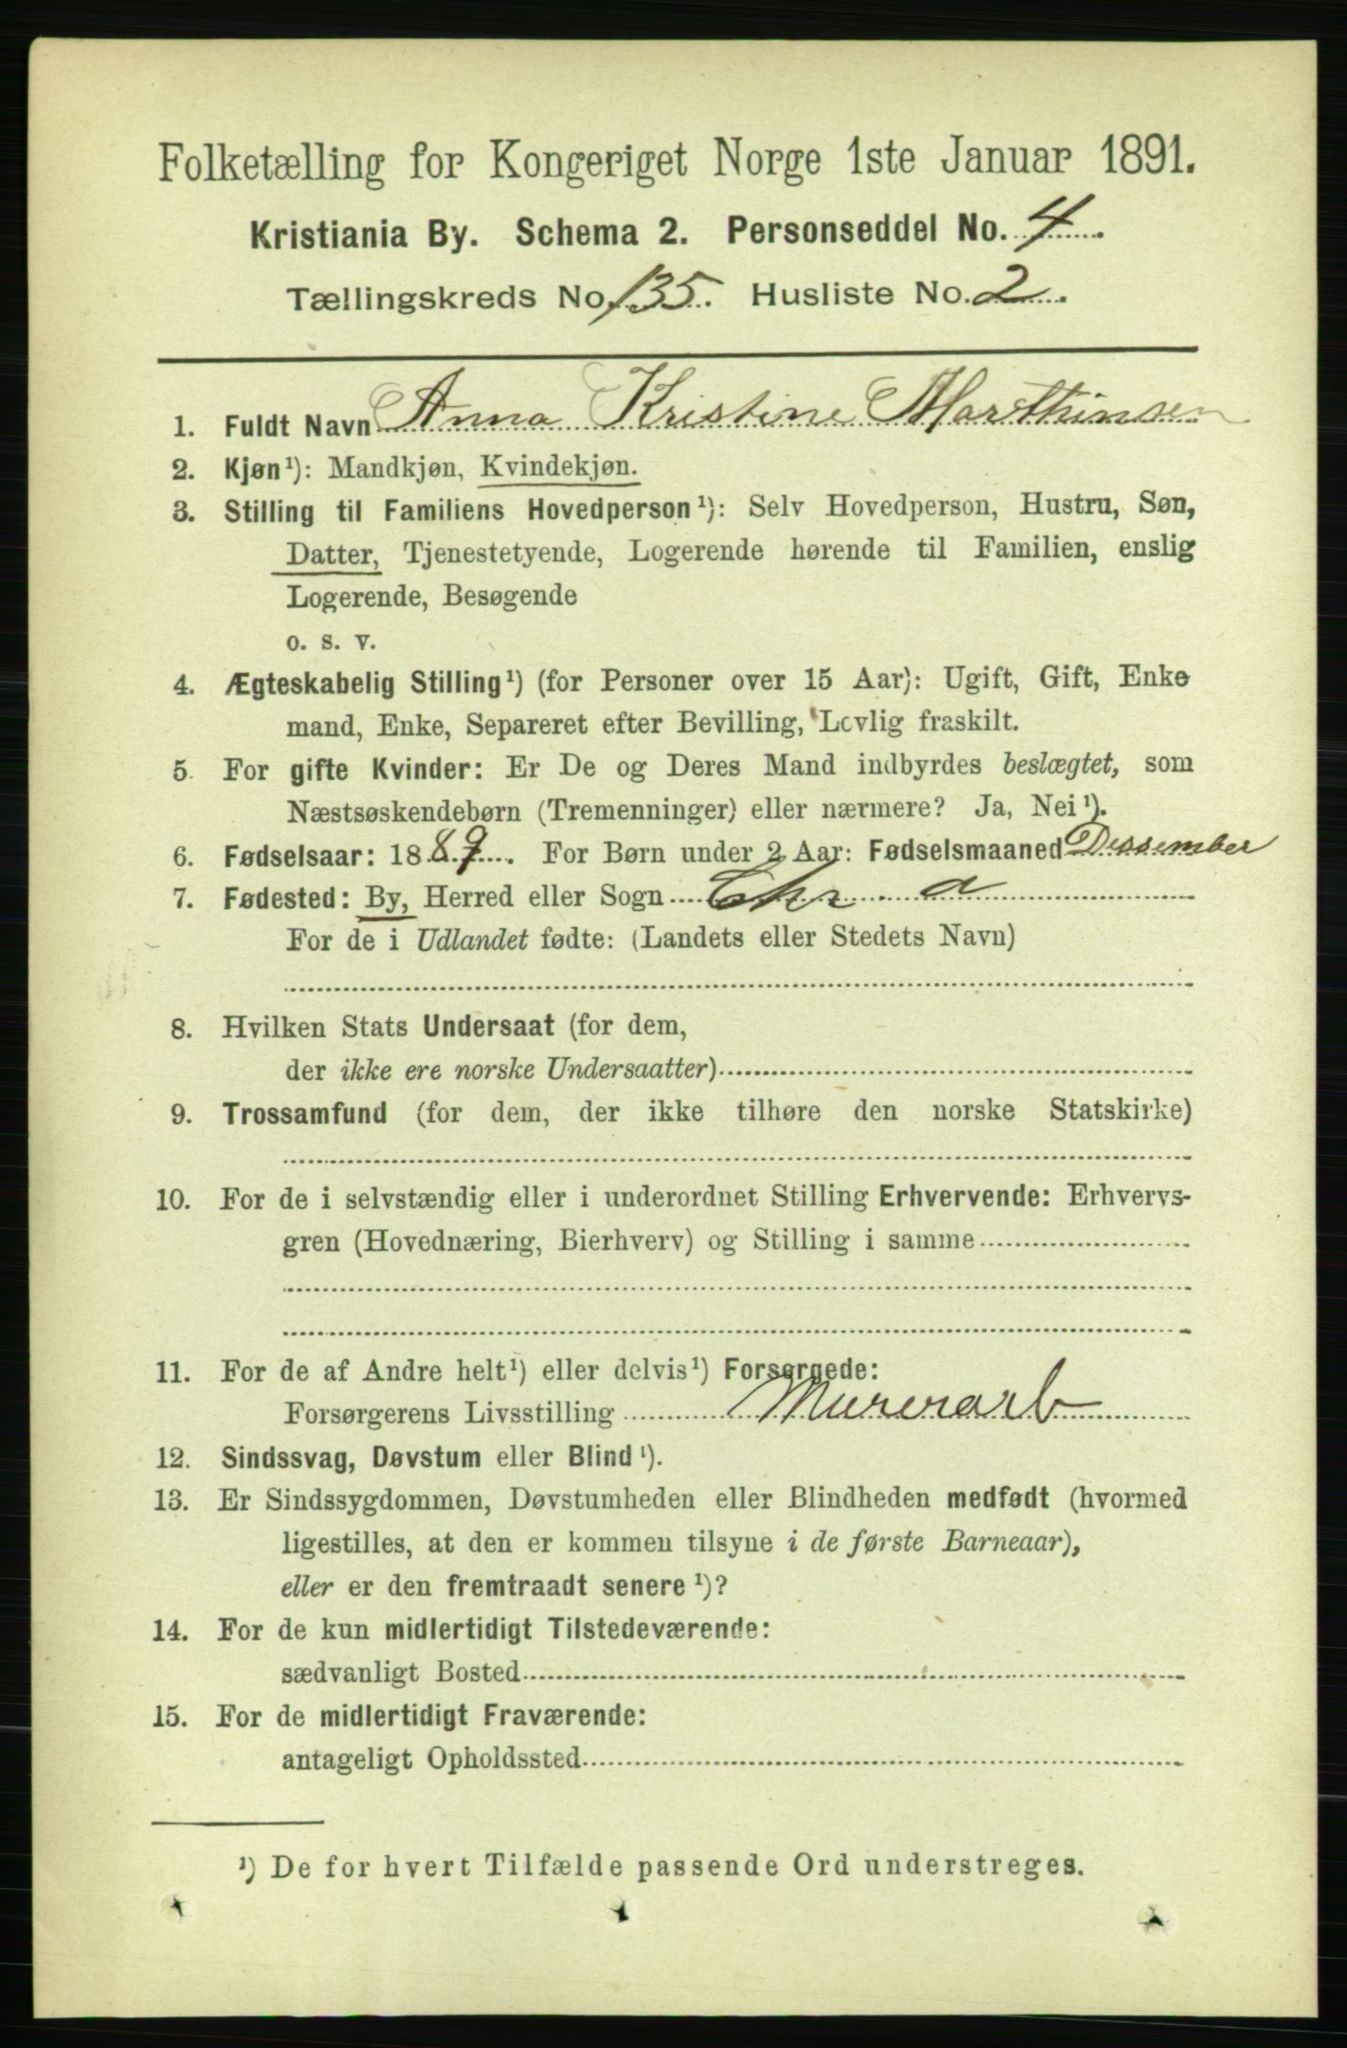 Folketælling for Kongeriget Norge 1ste Januar 1891.
Kristiania By. Schema 2. Personseddel No. 4
Tællingskreds No. 135. Husliste No. 2.
1. Fuldt Navn Anna Kristine Marthinsen
2. Kjøn¹): Mandkjøn, Kvindekjøn.
3. Stilling til Familiens Hovedperson¹): Selv Hovedperson, Hustru, Søn,
Datter, Tjenestetyende, Logerende hørende til Familien, enslig
Logerende, Besøgende
o. s. v.
4. Ægteskabelig Stilling¹) (for Personer over 15 Aar): Ugift, Gift, Enke
mand, Enke, Separeret efter Bevilling, Lovlig fraskilt.
5. For gifte Kvinder: Er De og Deres Mand indbyrdes beslægtet, som
Næstsøskendebørn (Tremenninger) eller nærmere? Ja, Nei¹).
6. Fødselsaar: 1889. For Børn under 2 Aar: Fødselsmaaned Dessember
7. Fødested: By, Herred eller Sogn Chr. a
For de i Udlandet fødte: (Landets eller Stedets Navn)
8. Hvilken Stats Undersaat (for dem,
der ikke ere norske Undersaatter)
9. Trossamfund (for dem, der ikke tilhøre den norske Statskirke)
10. For de i selvstændig eller i underordnet Stilling Erhvervende: Erhvervs-
gren (Hovednæring, Bierhverv) og Stilling i samme
11. For de af Andre helt¹) eller delvis¹) Forsørgede:
Forsørgerens Livsstilling Murerarb
12. Sindssvag, Døvstum eller Blind¹).
13. Er Sindssygdommen, Døvstumheden eller Blindheden medfødt (hvormed
ligestilles, at den er kommen tilsyne i de første Barneaar),
eller er den fremtraadt senere¹)?
14. For de kun midlertidigt Tilstedeværende:
sædvanligt Bosted
15. For de midlertidigt Fraværende:
antageligt Opholdssted
¹) De for hvert Tilfælde passende Ord understreges.